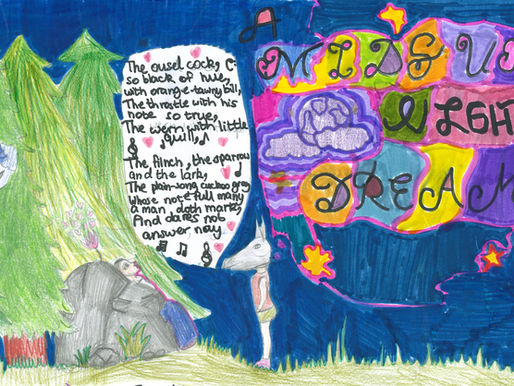 The ousel cock,
so black of hue,
with orange-tawny bill,
The throstle with his
note so true,
The wern with little
quill,
The flinch, the sparrow
and the lark,
The plain-song cuckoo grey
whose note full many
a man, doth mark,
And dares not
answer nay
A
MIDSU
NIGHT
DREAM